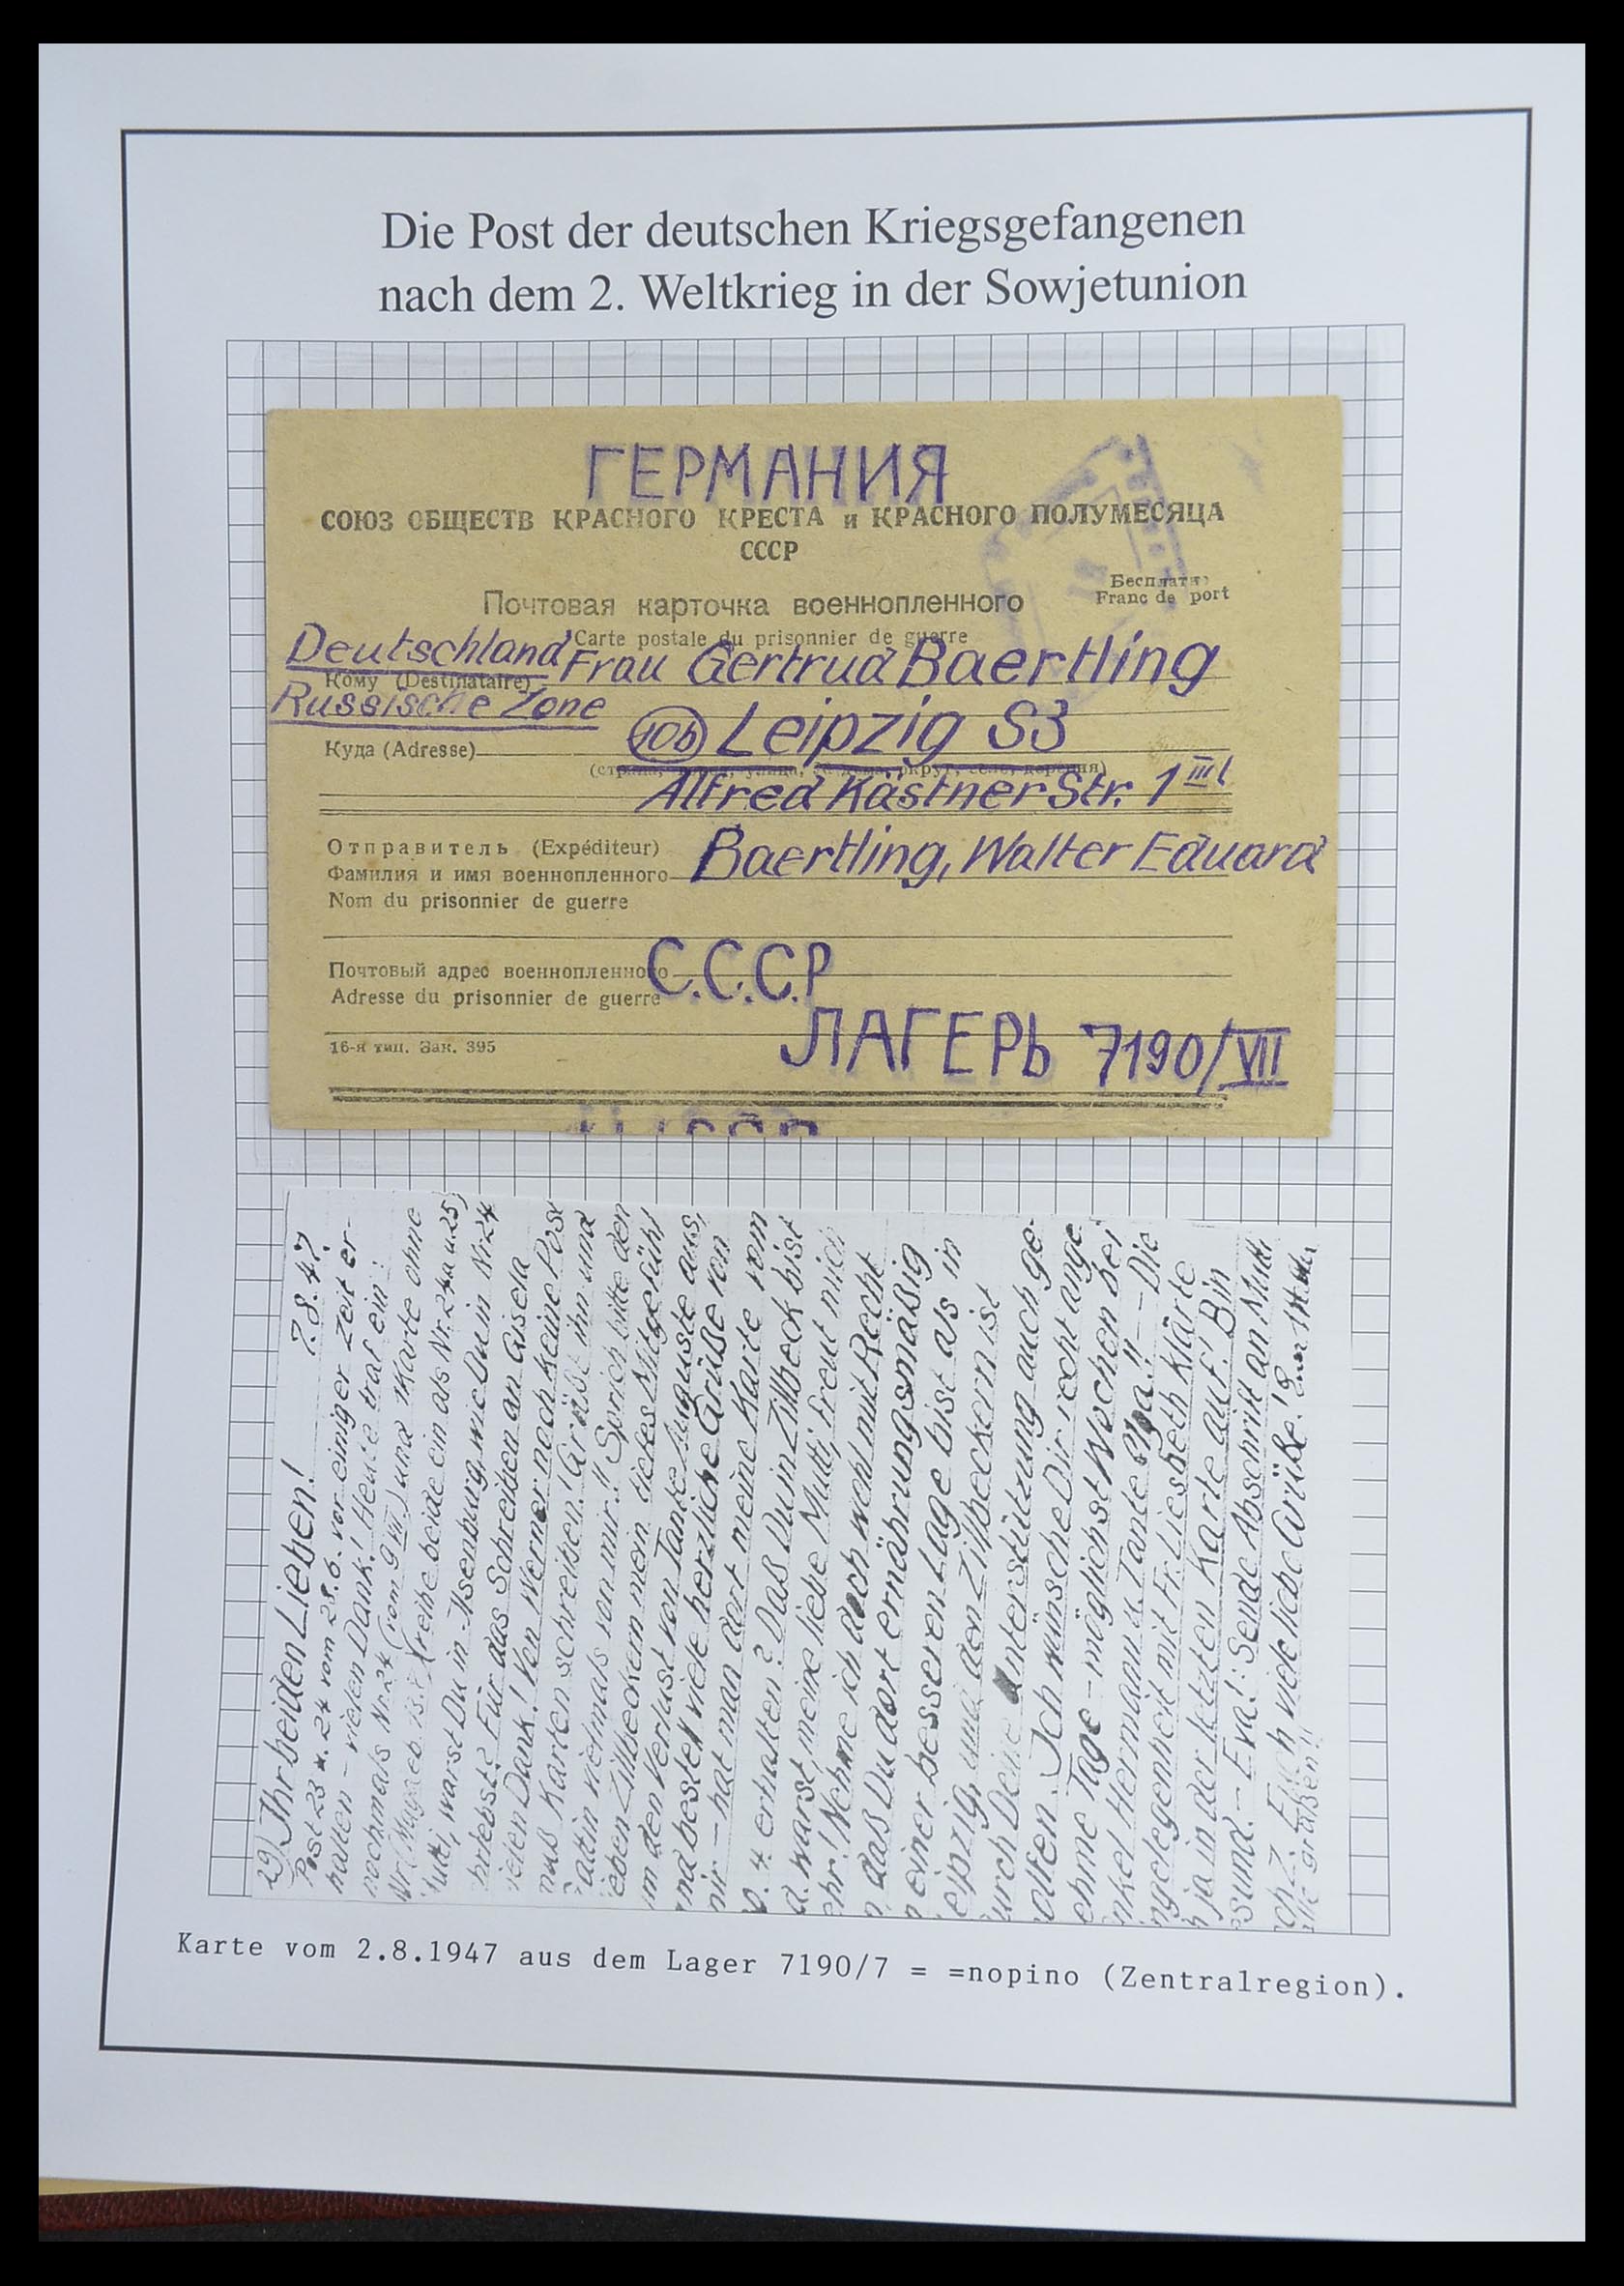 Die Post der deutschen Kriegsgefangenen
nach dem 2. Weltkrieg in der Sowjetunion
ГЕРМАНИЯ
СОЮЗ ОБЩЕСТВ КРАСНОГО КРЕСТА и КРАСНОГО ПОЛУМЕСЯЦА
СССР
Бесплатно
Franc de port
Почтовая карточка военнопленного
Carte postale du prisonnier de guerre
Deutschland Frau Gertrud Baertling
Кому (Destinataire)
Russische Zone
10b Leipzig S3
Куда (Adresse)
Alfred Kästner Str. 1 III l
Отправитель (Expéditeur)
Baertling, Walter Eduard
Фамилия и имя военнопленного
Nom du prisonnier de guerre
С.С.С.Р
Почтовый адрес военнопленного
Adresse du prisonnier de guerre
ЛАГЕРЬ 7190/VII
16-я тип. Зак. 395
29) Ihr beiden Lieben!
Post 23 u. 24 vom 28.6. vor einiger Zeit er-
halten – vielen Dank! Heute traf ein:
nochmals Nr. 24 (vom 9 VII) und 1 Karte ohne
reihe beide ein als Nr. 24a u. 25)
warst Du in Ilsenburg, wie Du in Nr. 24
Für das Schreiben an Gisela
vielen Dank! Von Werner noch keine Post
muß Karten schreiben! Grüße ihn und
Gattin vielmals von mir!! Sprich bitte den
lieben Zillbeckern mein tiefes Mitgefühl
um den Verlust von Tante Auguste aus,
und bestell viele herzliche Grüße von
mir – hat man dort meine Karte vom
4. erhalten? Daß Du in Zillbeck bist
warst, meine liebe Mutti, freut mich
sehr! Nehme ich doch wohl mit Recht
daß Du dort ernährungsmäßig
in einer besseren Lage bist als in
Leipzig, und den Zillbeckern ist
durch Deine Unterstützung auch ge-
holfen. Ich wünsche Dir recht ange-
nehme Tage – möglichst Wochen bei
Onkel Hermann u. Tante – Die
Angelegenheit mit Fr. Liesbeth klärte
ja in der letzten Karte auf! Bin
gesund. – Eva!: Sende Abschrift an Mutti
Euch viele liebe Grüße!
grüßen!!
Karte vom 2.8.1947 aus dem Lager 7190/7 = =nopino (Zentralregion).